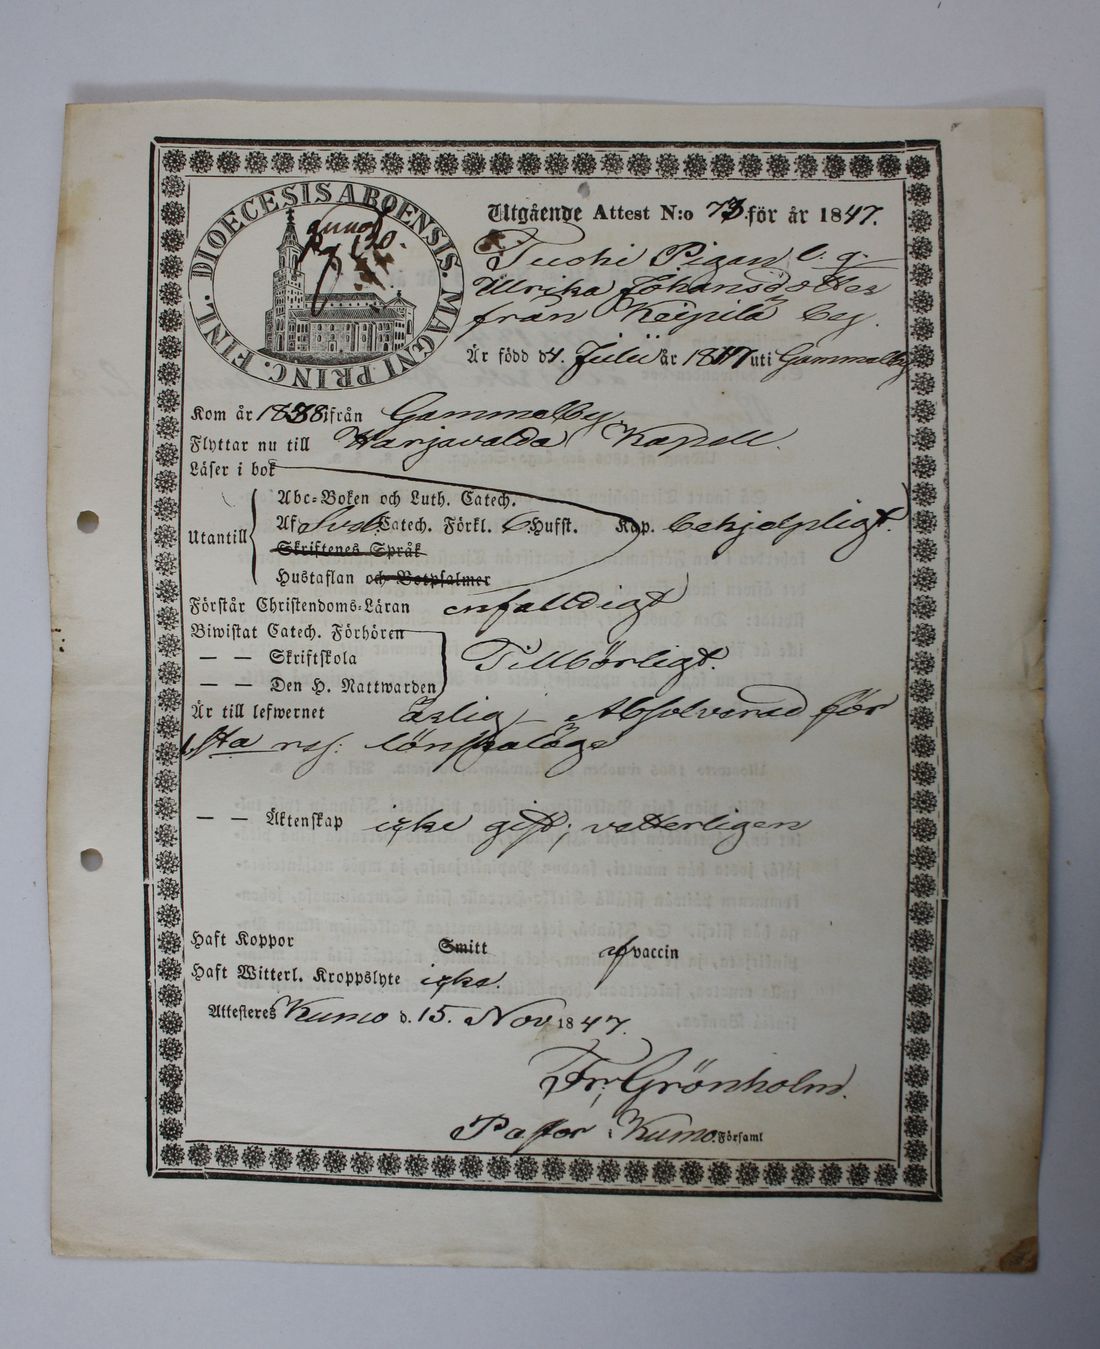 DIOECESIS ABOENSIS. MAGNI PRINC. FINL.
Utgående Attest N:o 73. för år 1847.
Pigan l. q.
Ulrika Johansdotter
från Keipilä by.
Är född d 4. Julii år 1817 uti Gammelby
Kom år 1838 ifrån Gammelby
Flyttar nu till Harjavalda Kapell
Läser i bok
Abc-Boken och Luth. Catech.
Utantill Af Sveb. Catech. Förkl. Husst. Kap. behjelpligt.
Skriftenes Språk
Hustaflan och Botpsalmer
Förstår Christendoms-Läran enfalldigt
Biwistat Catech. Förhören
— — Skriftskola Tillbörligt.
— — Den H. Nattwarden
Är till lefwernet ärlig, Absolverad för
1sta lönskaläge
— — Äktenskap icke gift, vetterligen
Haft Koppor Smitt af vaccin
Haft Witterl. Kroppslyte icke.
Attesteres Kumo d. 15. Nov 1847.
Fr. Grönholm.
Pastor i Kumo Församl